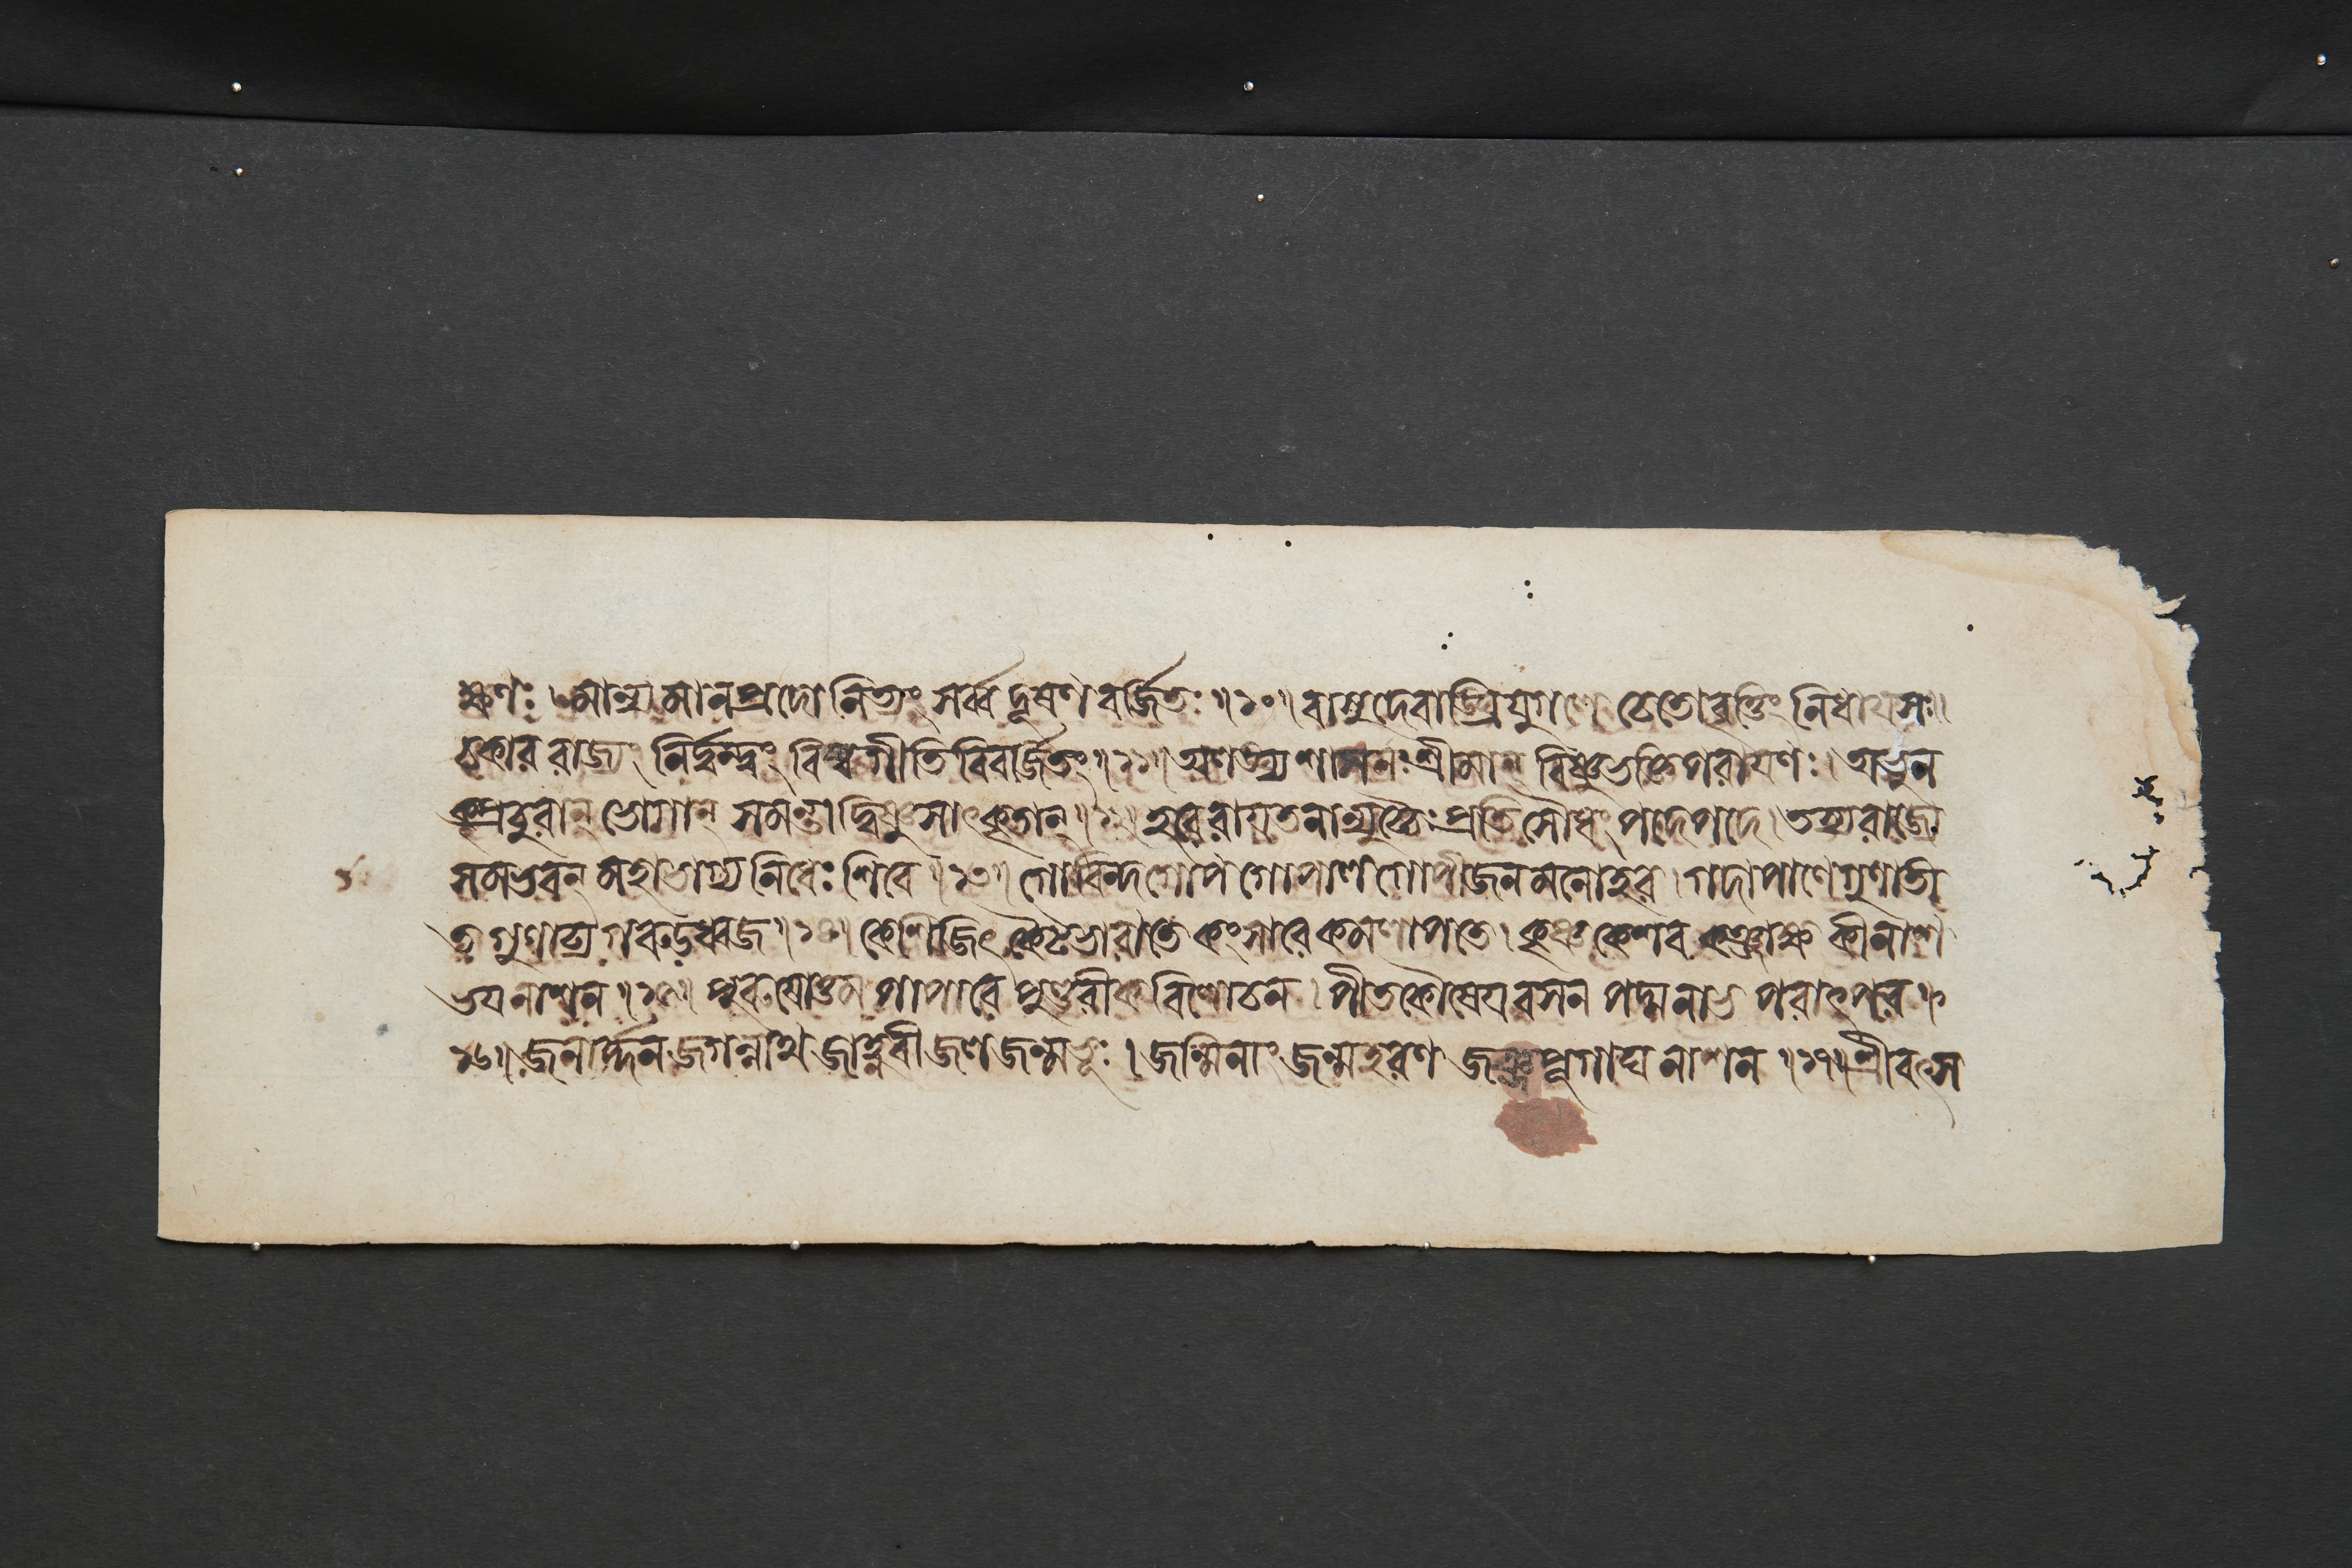 ক্ষণঃ । মান্যমানপ্রদো নিত্যং সর্ব্বদূষণবর্জিতঃ ॥১০॥ বাসুদেবাঙ্ঘ্রিযুগলে চেতোবৃত্তিং নিধায সঃ।
চকার রাজ্যং নির্দ্বন্দ্বং বিষ্বগীতিবিবর্জিতং ॥১১॥ অলঙ্ঘ্যশাসনঃ শ্রীমান্ বিষ্ণুভক্তিপরাযণঃ। অভুন
ক্প্রচুরান্ ভোগান্ সমন্তাদ্বিষ্ণুসাৎকৃতান্ ॥১২॥ হরেরাযতনান্যুচ্চৈঃ প্রতিসৌধং পদে পদে। তস্য রাজ্যে
সমভবন্ মহাভাগ্যনিধেঃ শিবে ॥১৩॥ গোবিন্দ গোপ গোপাল গোপীজনমনোহর। গদাপাণে গুণাতী
ত গুণাঢ্য গরুডধ্বজ ॥১৪॥ কেশিজিৎ কৈটভারাতে কংসারে কমলাপতে। কৃষ্ণ কেশব কঞ্জাক্ষ কীনাশ
ভযনাশন ॥১৫॥ পুরুষোত্তম পাপারে পুণ্ডরীকবিলোচন। পীতকৌষেযবসন পদ্মনাভ পরাৎপর ॥
১৬॥ জনার্দ্দন জগন্নাথ জাহ্নবীজলজন্মভূঃ। জন্মিনাং জন্মহরণ জঞ্জপূগাঘনাশন ॥১৭॥ শ্রীবৎস